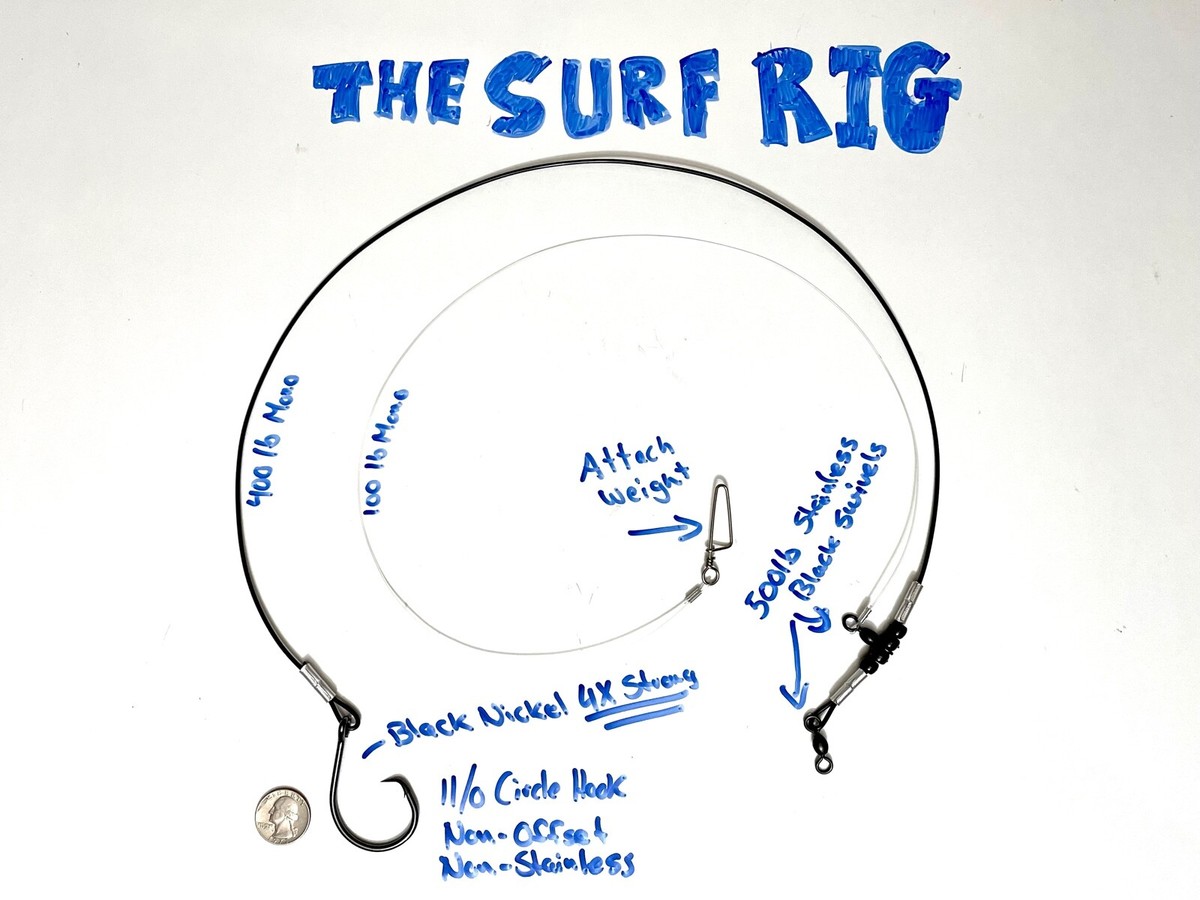 THE SURF RIG
400 lb Mono
100 lb Mono
Attach
Weight
500lb Stainless
Black Swivels
-Black Nickel 4X Strong
11/0 Circle Hook
Non-Offset
Non-Stainless